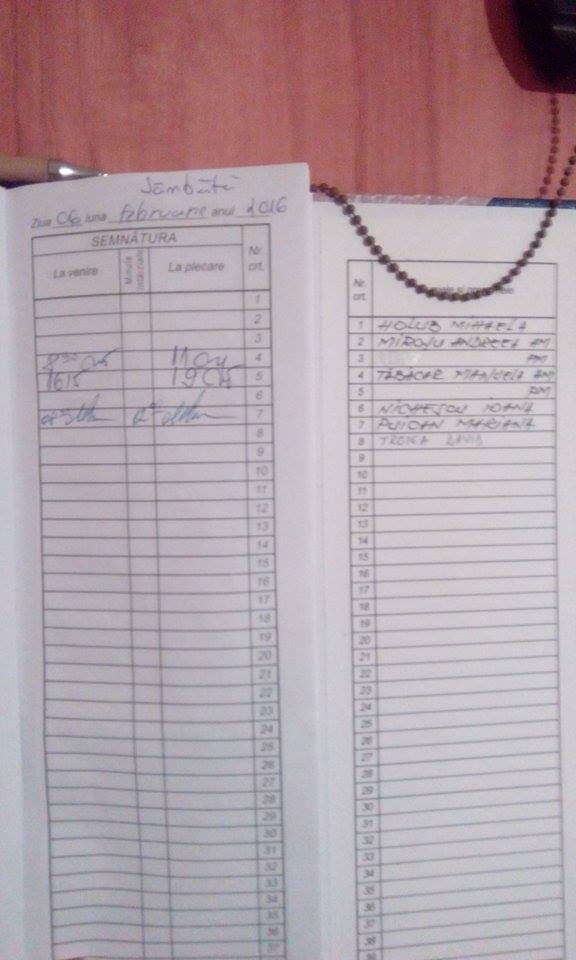 Sâmbătă
Ziua 06 luna februarie anul 2016
SEMNĂTURA
Nr. crt.
La venire
Minute întârziate
La plecare
1
2
3
4
1615 19
5
6
7
8
9
10
11
12
13
14
15
16
17
18
19
20
21
22
23
24
25
26
27
28
29
30
31
32
33
34
35
36
37
Nr. crt.
1 HOLUB MIHAELA
2 MIROJU ANDREEA AM
3 PM
4 TĂBĂCAR MANUELA AM
5 PM
6 NICHESCU IOANA
7 PUICAN MARIANA
8 DAVID
9
10
11
12
13
14
15
16
17
18
19
20
21
22
23
24
25
26
27
28
29
30
31
32
33
34
35
36
37
38